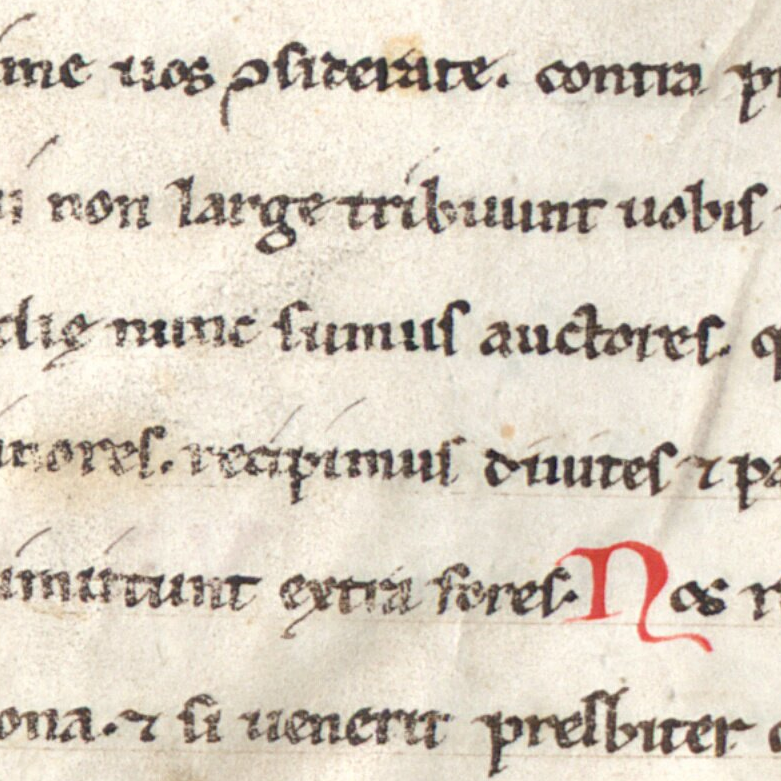 ime uos ꝯsiderate. contra p
i non large tribuunt uobis
dię nunc sumus auctores. q
inores. recipimus diuites ⁊ pa
imittunt extra fores. Nos r
ona. ⁊ si uenerit presbiter c